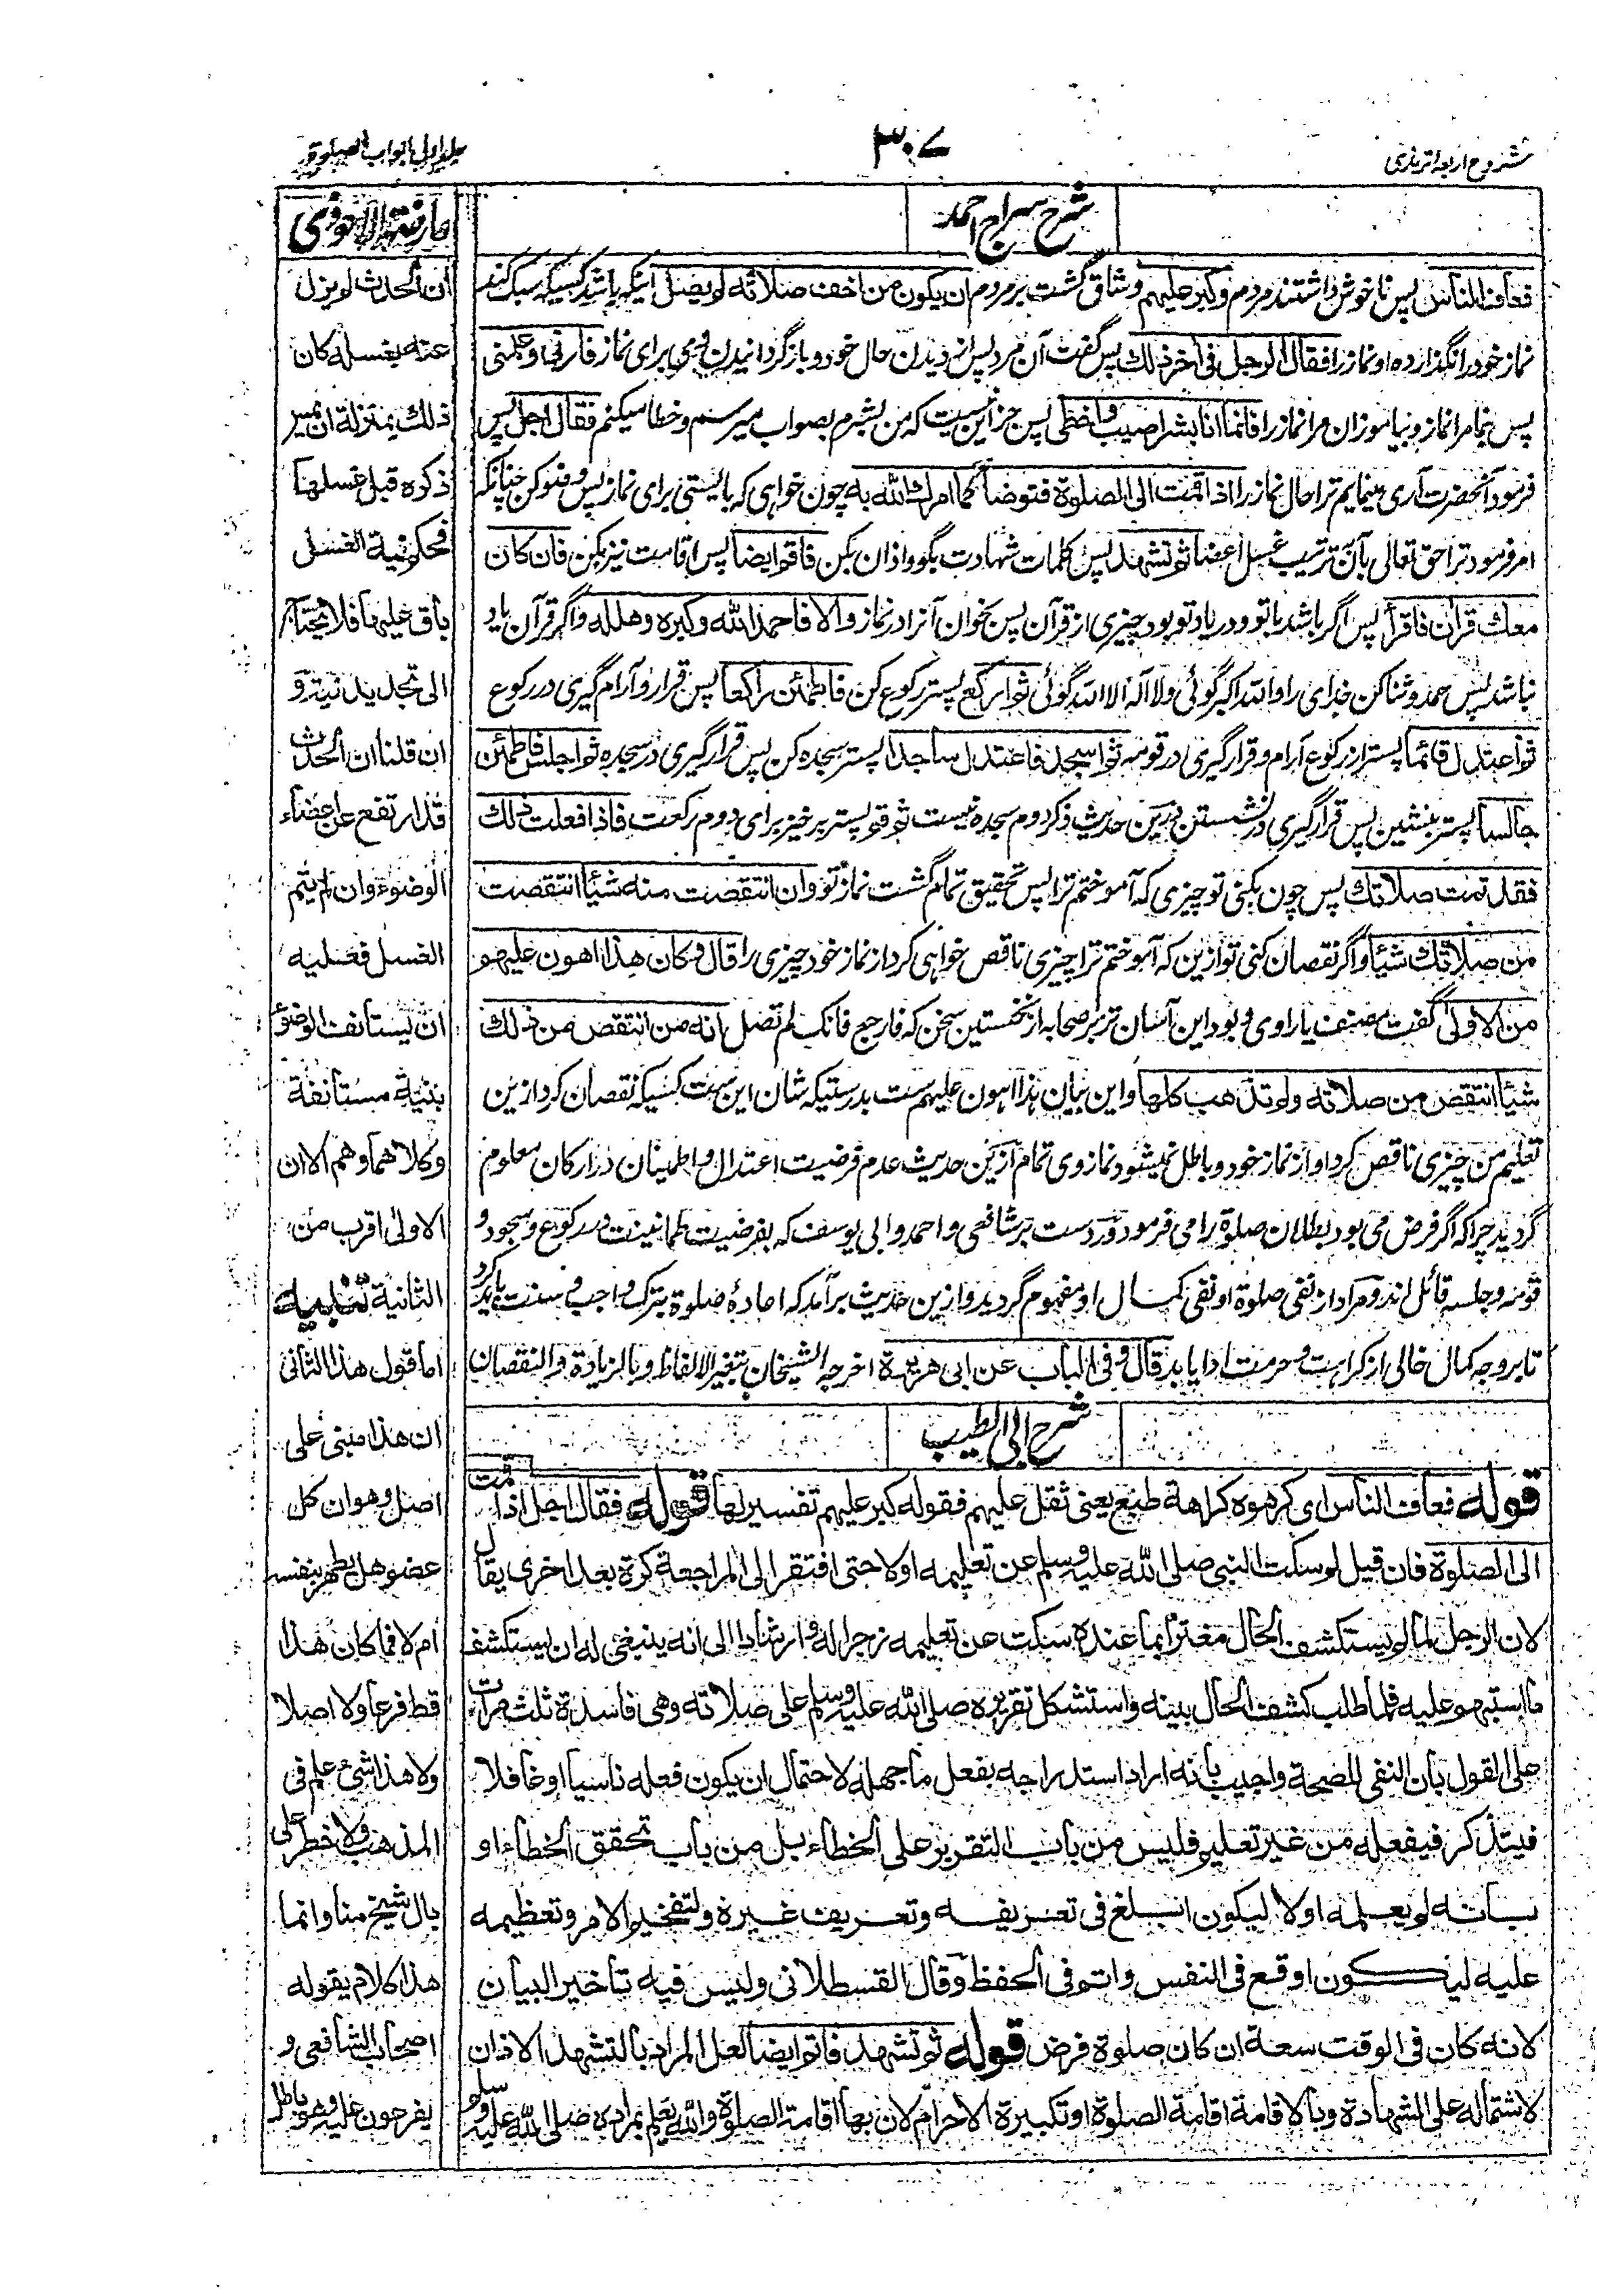 شروح اربعہ ترمذی
۳۰۷
جلد اول ابواب الصلوة
شرح سراج احمد
فعاف الناس پس ناخوش داشتند مردم وکبر علیهم وشاق گشت بر مردم ان یکون من اخف صلاته لم یصل اینکه باشد کسیکه سبک کند
نماز خود را نگذارده او نماز را فقال الرجل فی آخر ذلك پس گفت آن مرد پس از دیدن حال خود و باز گردانیدن وی برای نماز فارنی وعلمنی
پس بنما مرا نماز و بیاموزان مرا نماز را فانما انا بشر اصیب واخطی پس جز این نیست که من بشرم بصواب میرسم و خطا میکنم فقال اجل پس
فرمود آنحضرت آری مینمایم ترا حال نماز را اذا قمت الی الصلوة فتوضأ کما امرك الله به چون خواهی که بایستی برای نماز پس وضو کن چنانکه
امر فرمود ترا حق تعالی بآن ترتیب غسل اعضا ثم تشهد پس کلمات شهادت بگو و اذان بکن فاقم ایضا پس اقامت نیز بکن فان کان
معك قران فاقرأ پس اگر باشد با تو و در یاد تو بود چیزی از قرآن پس بخوان آنرا در نماز والا فاحمد الله وکبره وهلله و اگر قرآن یاد
نباشد پس حمد و ثنا کن خدای را و الله اکبر گوئی و لا اله الا الله گوئی ثم ارکع پستر رکوع کن فاطمئن راکعا پس قرار و آرام گیری در رکوع
ثم اعتدل قائما پستر از رکوع آرام و قرار گیری در قومه ثم اسجد فاعتدل ساجدا پستر سجده کن پس قرار گیری در سجده ثم اجلس فاطمئن
جالسا پستر بنشین پس قرار گیری در نشستن درین حدیث ذکر دوم سجده نیست ثم قم پستر برخیز برای دوم رکعت فاذا فعلت ذلك
فقد تمت صلاتك پس چون بکنی تو چیزی که آموختم ترا پس تحقیق تمام گشت نماز تو وان انتقصت منه شیئا انتقصت
من صلاتك شیئا و اگر نقصان کنی تو ازین که آموختم ترا چیزی ناقص خواهی کرد از نماز خود چیزی را قال وکان هذا اهون علیهم
من الاولی گفت مصنف یا راوی و بود این آسان تر بر صحابه از نخستین سخن که فارجع فانك لم تصل انه من انتقص من ذلك
شیئا انتقص من صلاته ولم تذهب کلها و این بیان هذا اهون علیهم ست بدرستیکه شان این ست کسیکه نقصان کرد ازین
تعلیم من چیزی ناقص کرد او از نماز خود و باطل نمیشود نماز وی تمام ازین حدیث عدم فرضیت اعتدال و اطمینان در ارکان معلوم
گردید چرا که اگر فرض می بود بطلان صلوة را می فرمود و رد ست بر شافعی و احمد و ابی یوسف که بفرضیت طمانینت در رکوع و سجود و
قومه و جلسه قائل اند و مراد از نفی صلوة او نفی کمال او مفهوم گردید و ازین حدیث بر آمد که اعادهٔ صلوة بترک واجب و سنت باید کرد
تا بر وجه کمال خالی از کراهت و حرمت ادا یابد قال وفی الباب عن ابی هریرة اخرجه الشیخان بتغیر الالفاظ وبالزیادة والنقصان
شرح ابی الطیب
قوله فعاف الناس ای کرهوه کراهة طبع یعنی ثقل علیهم فقوله کبر علیهم تفسیر لها قوله فقال اجل اذا قمت
الی الصلوة فان قیل لم سکت النبی صلی الله علیه وسلم عن تعلیمه اولا حتی افتقر الی المراجعة کرة بعد اخری یقال
لان الرجل لما لم یستکشف الحال مغترا بما عنده سکت عن تعلیمه زجرا له وارشادا الی انه ینبغی له ان یستکشف
ما استبهم علیه فلما طلب کشف الحال بینه واستشکل تقریره صلی الله علیه وسلم علی صلاته وهی فاسدة ثلث مرات
علی القول بان النفی للصحة واجیب بانه اراد استدراجه بفعل ما جهله لاحتمال ان یکون فعله ناسیا او غافلا
فیتذکر فیفعله من غیر تعلیم فلیس من باب التقریر علی الخطاء بل من باب تحقق الخطاء او
بانه لم یعلمه اولا لیکون ابلغ فی تعریفه وتعریف غیره ولتفخیم الامر وتعظیمه
علیه لیکون اوقع فی النفس واتم فی الحفظ وقال القسطلانی ولیس فیه تاخیر البیان
لانه کان فی الوقت سعة ان کان صلوة فرض قوله ثم تشهد فاقم ایضا لعل المراد بالتشهد الاذان
لاشتماله علی الشهادة وبالاقامة اقامة الصلوة او تکبیرة الاحرام لان بها اقامة الصلوة والله یعلم بمراده صلی الله علیه وسلم
عارضة الاحوذی
ان الحدث لم یزل
عنه بغسله کان
ذلك بمنزلة ان نمیر
ذکره قبل غسلها
فحکم نیة الغسل
باق علیها فلا یحتاج
الی تجدید نیة و
ان قلنا ان الحدث
قد ارتفع عن اعضاء
الوضوء وان لم یتم
الغسل فعلیه
ان یستانف الوضوء
بنیة مستأنفة
وکلاهما وهم الا ان
الاولی اقرب من
الثانیة تنبیه
اما قول هذا الثانی
ان هذا مبنی علی
اصل وهو ان کل
عضو هل یطهر بنفسه
ام لا فما کان هذا
قط فرعا ولا اصلا
ولا هذا شیء علم فی
المذهب ولا خطر علی
بال شیخ منا وانما
هذا کلام یقوله
اصحاب الشافعی و
یفرعون علیه وهو باطل